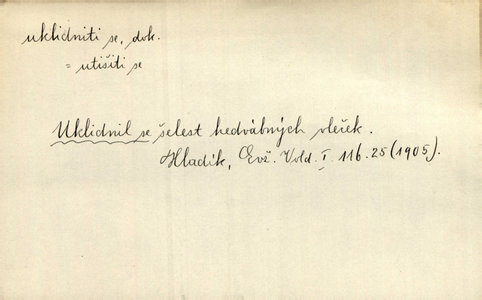 uklidniti se, dok.
= utišiti se
Uklidnil se šelest hedvábných vleček.
Hladík, Evž. Vold. I. 116.25 (1905).